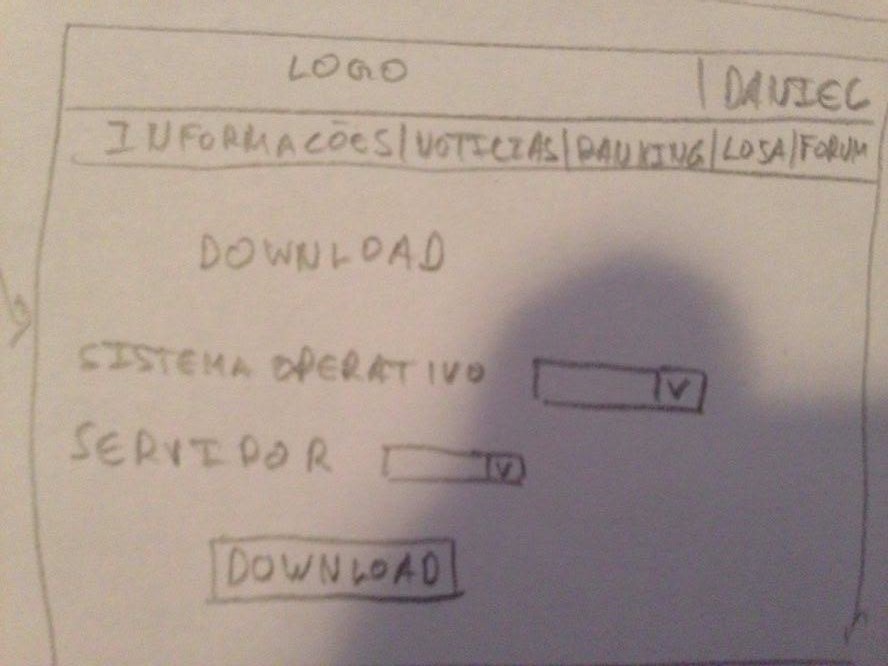 LOGO | DANIEL
INFORMAÇÕES | NOTICIAS | RANKING | LOJA | FORUM
DOWNLOAD
SISTEMA OPERATIVO
SERVIDOR
DOWNLOAD